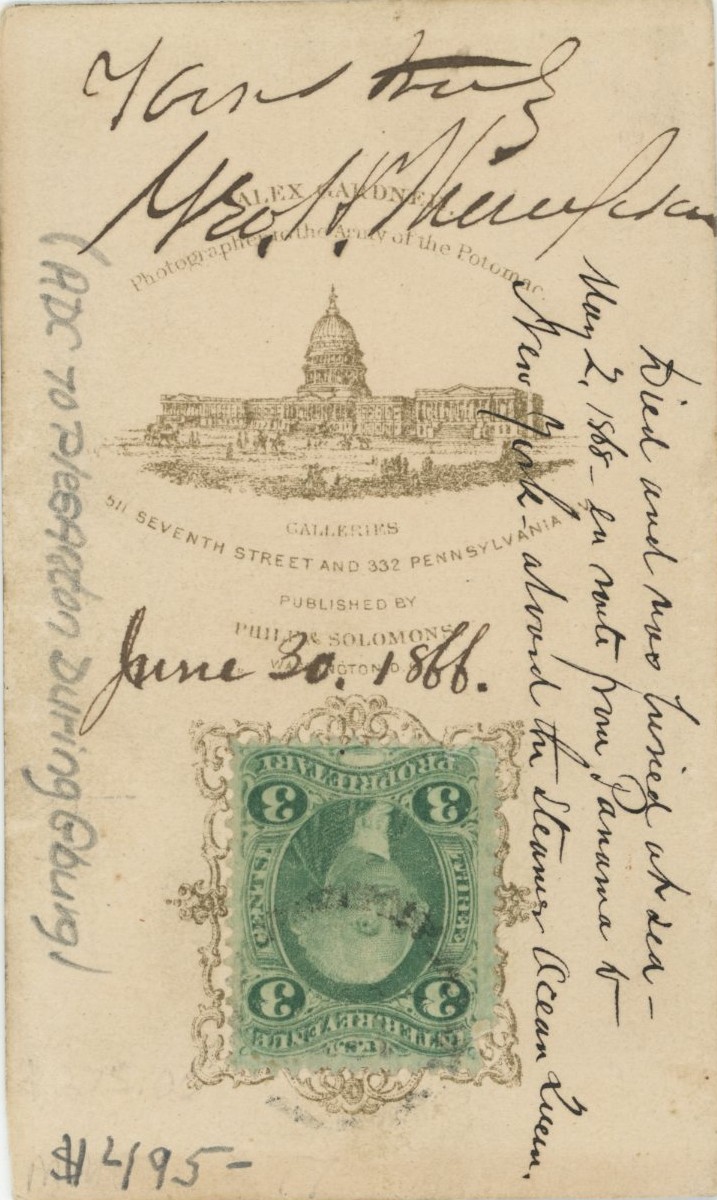 Yours truly
Geo. H. Thompson
ALEX GARDNER
Photographer to the Army of the Potomac
GALLERIES
511 SEVENTH STREET AND 332 PENNSYLVANIA
PUBLISHED BY
PHILP & SOLOMONS
WASHINGTON D.
June 30. 1866.
Died and was buried at sea -
May 2, 1868 - en route from Panama to
New York - aboard the Steamer Ocean Queen.
(ADC TO PleasANton During G'burg)
U.S. INTER. REV.
3 3
CENTS. THREE
3 3
PROPRIETARY
#495-